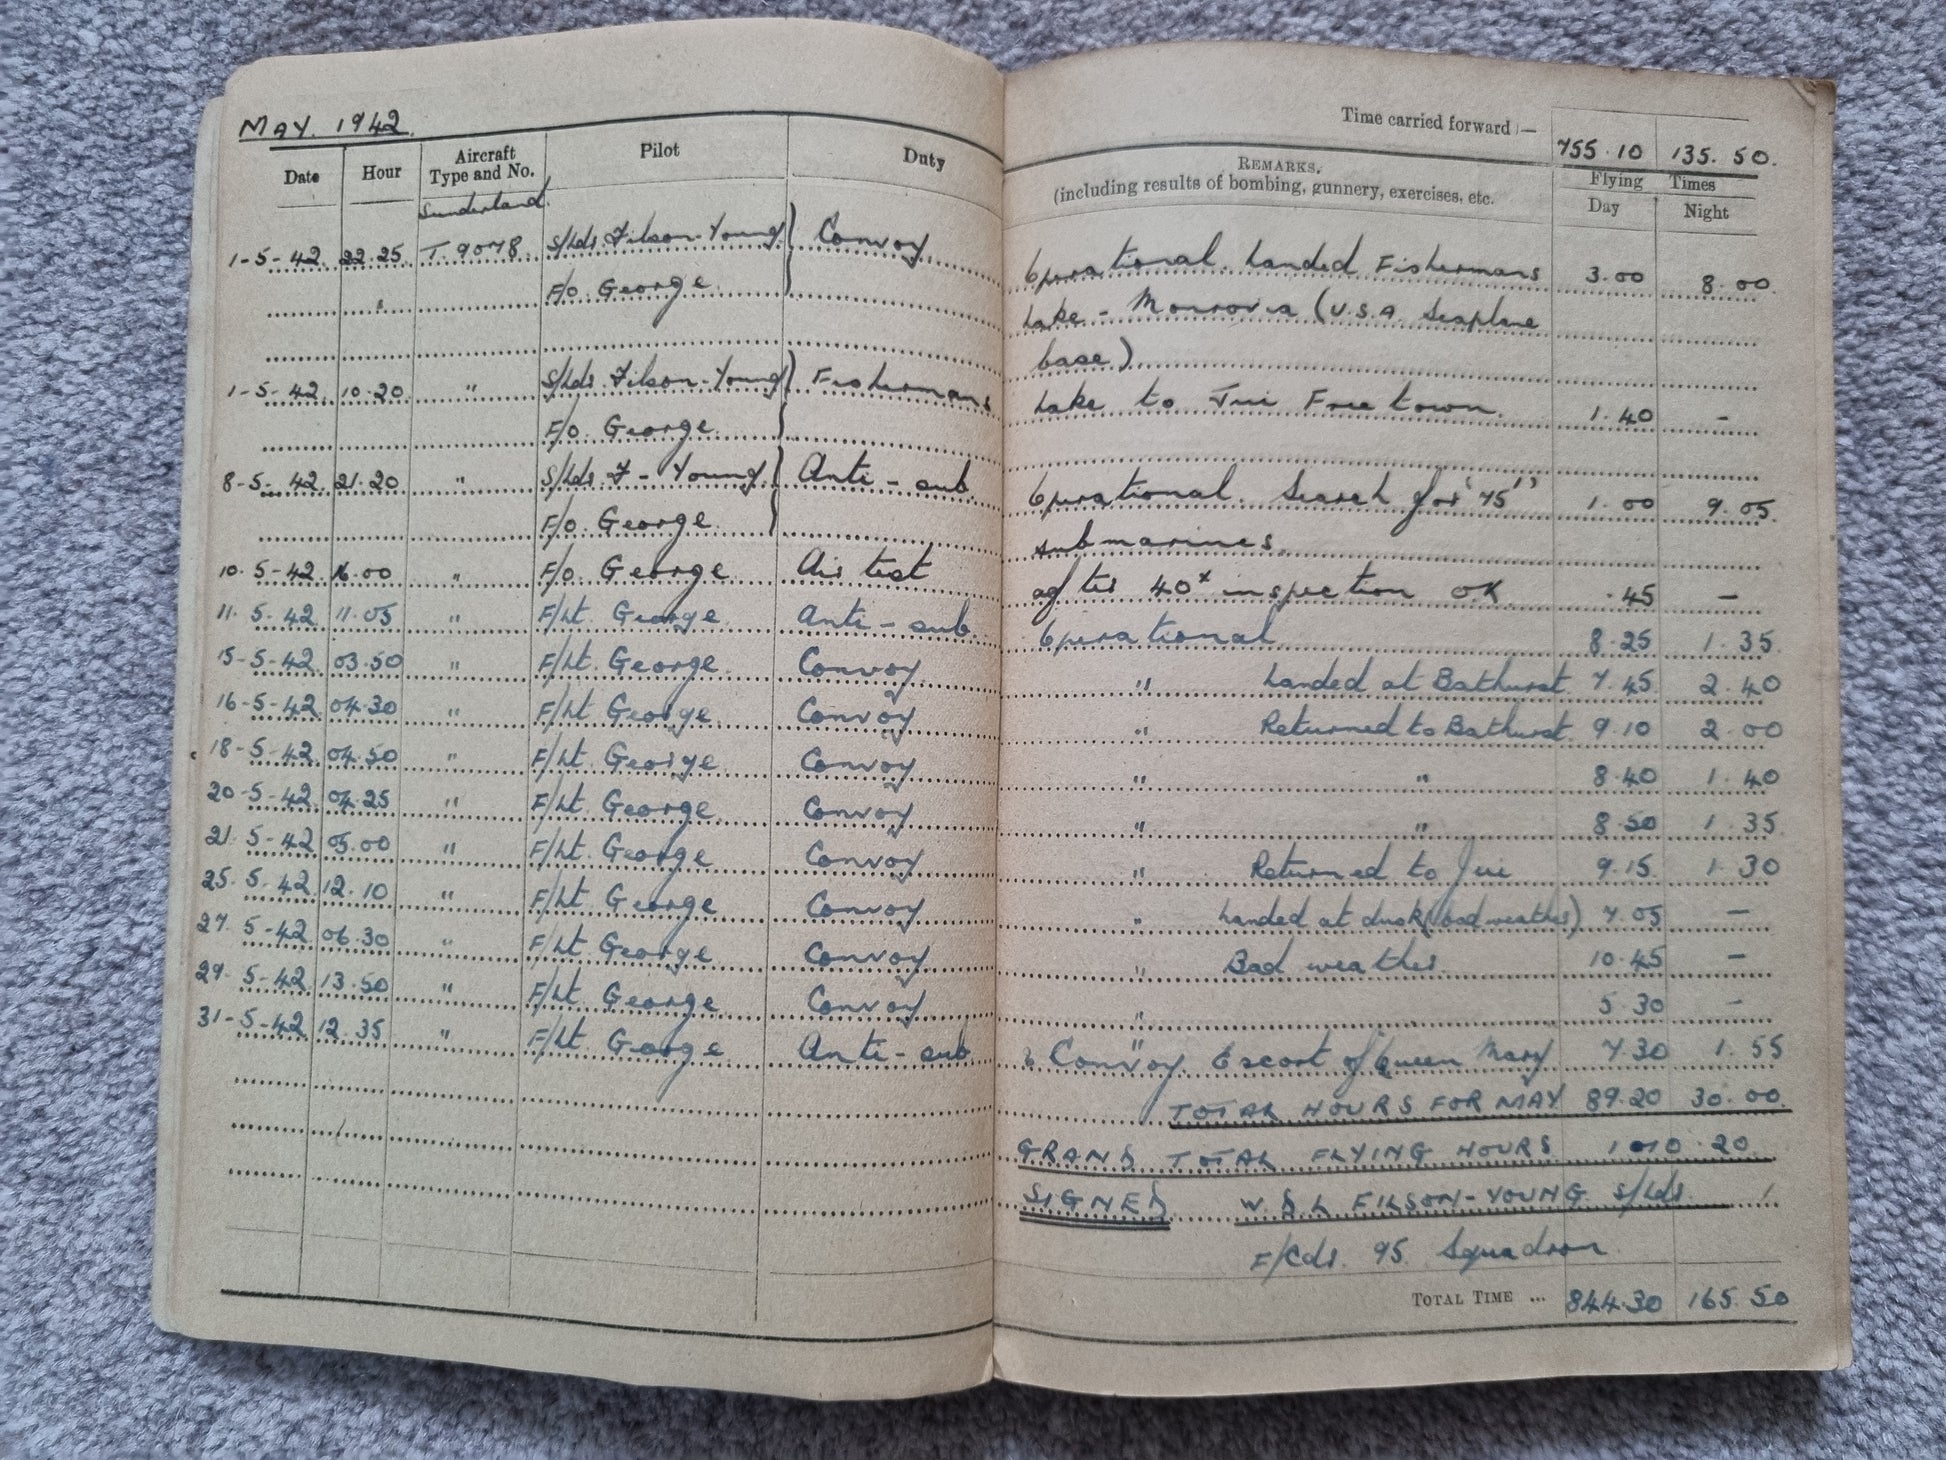 May. 1942.
Time carried forward :— 755.10 135.50.
Date Hour Aircraft Type and No. Pilot Duty REMARKS. (including results of bombing, gunnery, exercises, etc. Flying Times Day Night
Sunderland.
1-5-42 22.25 T.9078. S/Ldr. Filson-Young Convoy. Operational. Landed Fishermans 3.00 8.00
" F/O. George Lake - Monrovia (U.S.A. Seaplane
base).
1-5-42 10.20 " S/Ldr. Filson-Young Fishermans Lake to Jui Freetown. 1.40 -
F/O. George
8-5-42 21.20 " S/Ldr. F-Young Anti-sub. Operational. Search for '75' 1.00 9.05
F/O. George submarines.
10.5-42 16.00 " F/O. George Air test after 40x inspection OK .45 -
11.5.42 11.05 " F/Lt. George Anti-sub. Operational 8.25 1.35
15-5-42 03.50 " F/Lt. George Convoy " Landed at Bathurst. 7.45 2.40
16-5-42 04.30 " F/Lt. George Convoy " Returned to Bathurst. 9.10 2.00
18-5-42 04.50 " F/Lt. George Convoy " " 8.40 1.40
20-5-42 04.25 " F/Lt. George Convoy " " 8.50 1.35
21.5-42 05.00 " F/Lt. George Convoy " Returned to Jui 9.15 1.30
25.5-42 12.10 " F/Lt. George Convoy " Landed at dusk (bad weather) 7.05 -
27.5-42 06.30 " F/Lt. George Convoy " Bad weather. 10.45 -
29.5-42 13.50 " F/Lt. George Convoy " 5.30 -
31-5-42 12.35 " F/Lt. George Anti-sub " & Convoy. Escort of Queen Mary 7.30 1.55
TOTAL HOURS FOR MAY 89.20 30.00
GRAND TOTAL FLYING HOURS 1010.20
SIGNED W.D.L FILSON-YOUNG S/Ldr.
F/Cdr. 95 Squadron.
TOTAL TIME ... 844.30 165.50